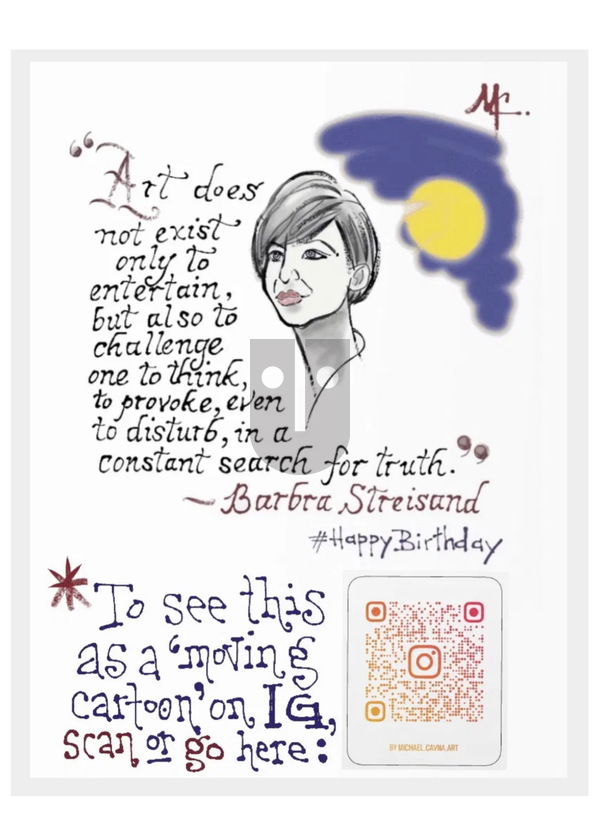 MC..
“Art does
not exist
only to
entertain,
but also to
challenge
one to think,
to provoke, even
to disturb, in a
constant search for truth.”
— Barbra Streisand
#HappyBirthday
* To see this
as a ‘moving
cartoon’ on IG,
scan or go here:
BY MICHAEL.CAVNA.ART